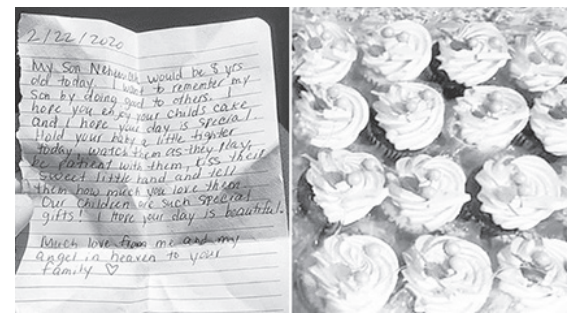 2/22/2020
My Son Nehemiah would be 8 yrs
old today. I want to remember my
son by doing good to others. I
hope you enjoy your childs cake
and I hope your day is special.
Hold your baby a little tighter
today, watch them as they play,
be patient with them, kiss their
sweet little hand and tell
them how much you love them.
Our children are such special
gifts! I hope your day is beautiful.
Much love from me and my
angel in heaven to your
family ♡